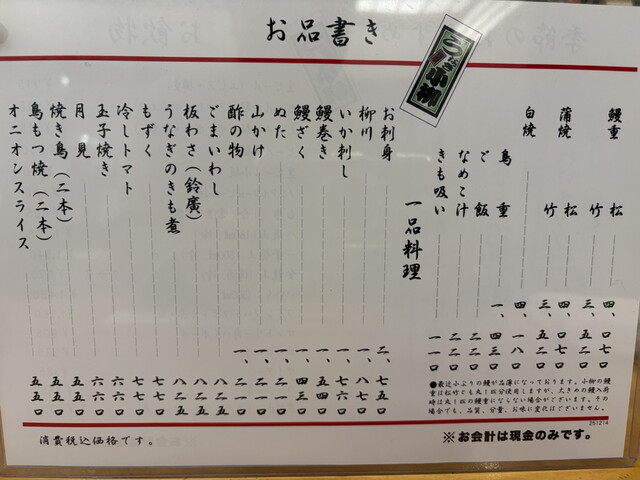 お品書き
うなぎ 小柳
鰻重 松 四、〇七〇
竹 三、五二〇
蒲焼 松 四、〇七〇
竹 三、五二〇
白焼 四、一八〇
鳥重 一、四三〇
ご飯 二二〇
なめこ汁 二二〇
きも吸い 一一〇
一品料理
お刺身 二、七五〇
柳川 一、八七〇
いか刺し
鰻巻き
鰻ざく
ぬた
山かけ
酢の物
ごまいわし
板わさ（鈴廣） 八二五
うなぎのきも煮
もずく 五五〇
冷しトマト
玉子焼き 六六〇
月見 六六〇
焼き鳥（二本） 五五〇
鳥もつ焼（二本） 五五〇
オニオンスライス 五五〇
●最近小ぶりの鰻が品薄になっております。小柳の鰻
重は松竹とも丸１匹分使用しますが、大きめの鰻入荷
時は丸１匹の鰻重にならない場合がございます。その
場合でも、品質、分量、お味に変化はございません。
251214
消費税込価格です。
※お会計は現金のみです。